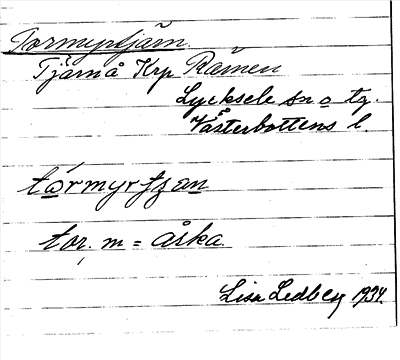 Tormyrtjärn.
Tjärn å Krp Råmen
Lycksele sn o tg.
Västerbottens l.
tormyrtʒan
tor. m = åska
Lisa Ledberg 1934.